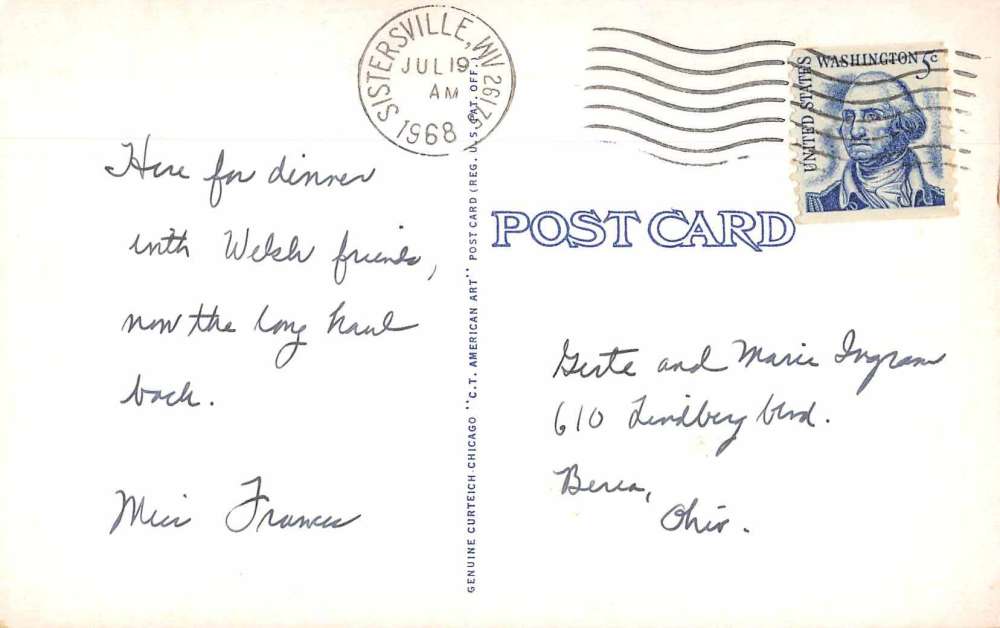 SISTERSVILLE, WV 26175
JUL 19
AM
1968
UNITED STATES
WASHINGTON 5c
POST CARD
GENUINE CURTEICH-CHICAGO "C.T. AMERICAN ART" POST CARD (REG. U.S. PAT. OFF.)
Here for dinner
with Welsh friends,
now the long haul
back.
Miss Frances
and Marie Ingram
610 Lindberg blvd.
Berea,
Ohio.